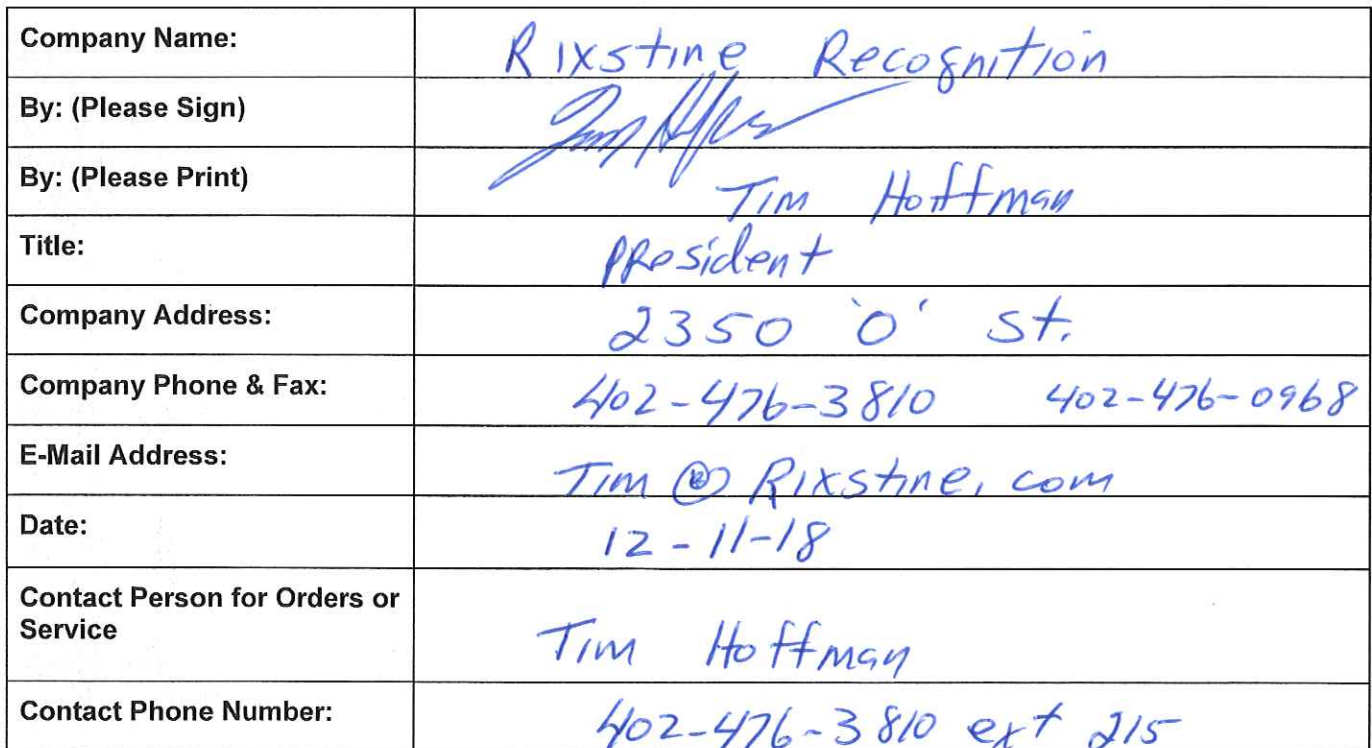 Company Name: Rixstine Recognition
By: (Please Sign)
By: (Please Print) Tim Hoffman
Title: President
Company Address: 2350 'O' St.
Company Phone & Fax: 402-476-3810 402-476-0968
E-Mail Address: Tim @ Rixstine.com
Date: 12-11-18
Contact Person for Orders or
Service Tim Hoffman
Contact Phone Number: 402-476-3810 ext 215